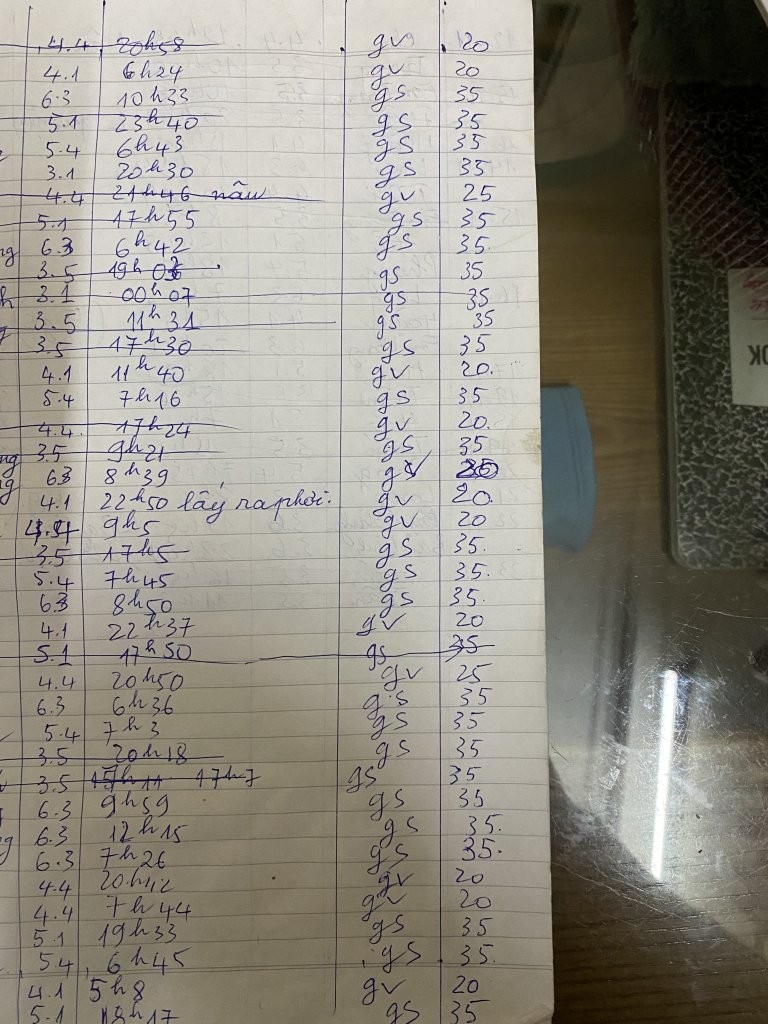 4.4 20h58 gv 20
4.1 6h24 gv 20
6.3 10h33 gs 35
5.1 23h40 gs 35
5.4 6h43 gs 35
3.1 20h30 gs 35
4.4 21h46 nâu gv 25
5.1 17h55 gs 35
ng 6.3 6h42 gs 35.
3.5 19h03 gs 35
h 3.1 00h07 gs 35
3.5 11h31 gs 35
3.5 17h30 gs 35
4.1 11h40 gv 20.
5.4 7h16 gs 35
4.4. 17h24 gv 20.
ng 3.5 9h21 gs 35
ng 6.3 8h39 gv
4.1 22h50 lấy ra phơi. gv 20.
9h5 gv 20
3.5 17h5 gs 35.
5.4 7h45 gs 35.
6.3 8h50 gs 35.
4.1 22h37 gv 20
5.1 17h50 gs 35
4.4 20h50 gv 25
6.3 6h36 gs 35
5.4 7h3 gs 35
3.5 20h18 gs 35
3.5 17h7 gs 35
6.3 9h59 gs 35
6.3 12h15 gs 35.
ng 6.3 7h26 gs 35.
4.4 20h42 gv 20
4.4 7h44 gv 20
5.1 19h33 gs 35
5.4 6h45 gs 35.
4.1 5h8 gv 20
5.1 18h17 gs 35